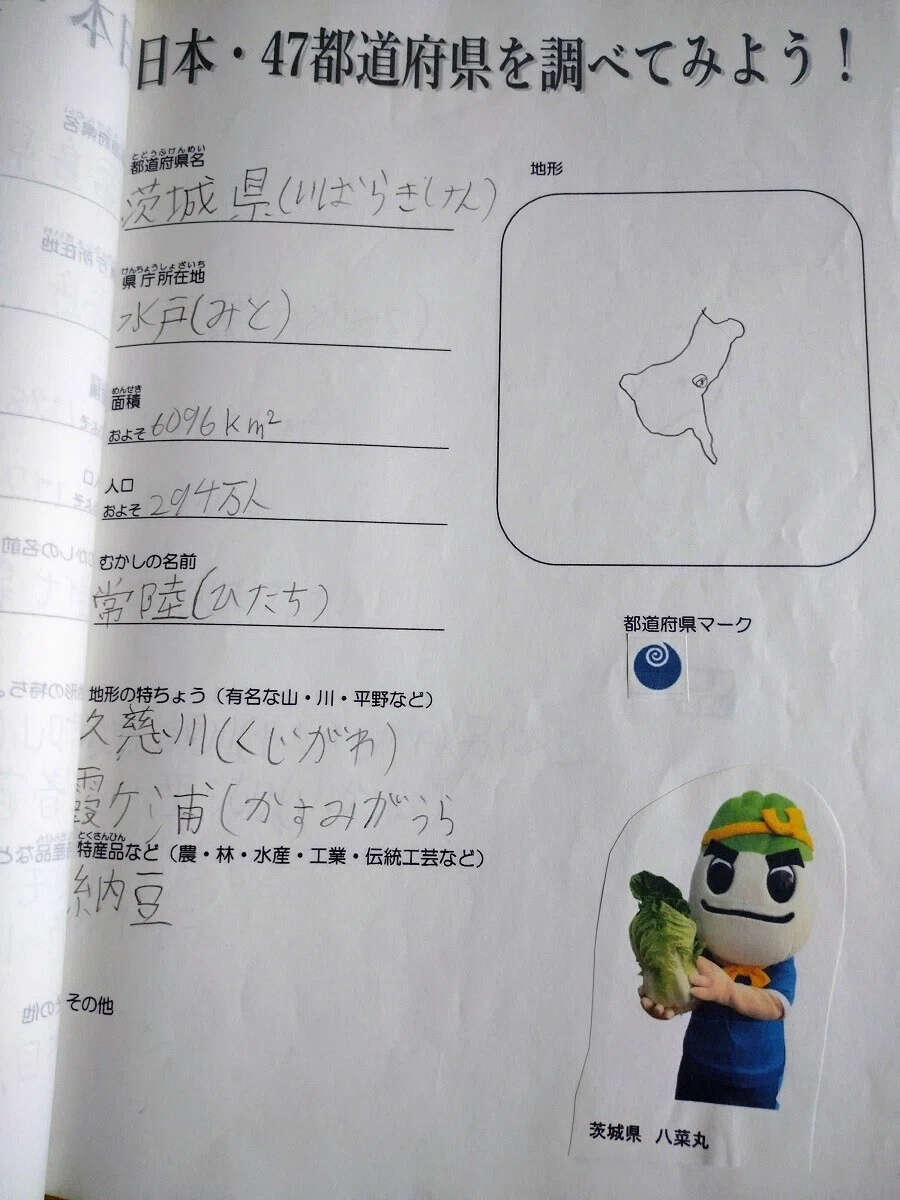 日本・47都道府県を調べてみよう！
とどうふけんめい
都道府県名
茨城県(いばらぎけん)
けんちょうしょざいち
県庁所在地
水戸(みと)
めんせき
面積
およそ 6096km²
人口
およそ 294万人
むかしの名前
常陸(ひたち)
地形の特ちょう（有名な山・川・平野など）
久慈川(くじがわ)
霞ケ浦(かすみがうら
とくさんひん
特産品など（農・林・水産・工業・伝統工芸など）
納豆
その他
地形
都道府県マーク
茨城県 八菜丸